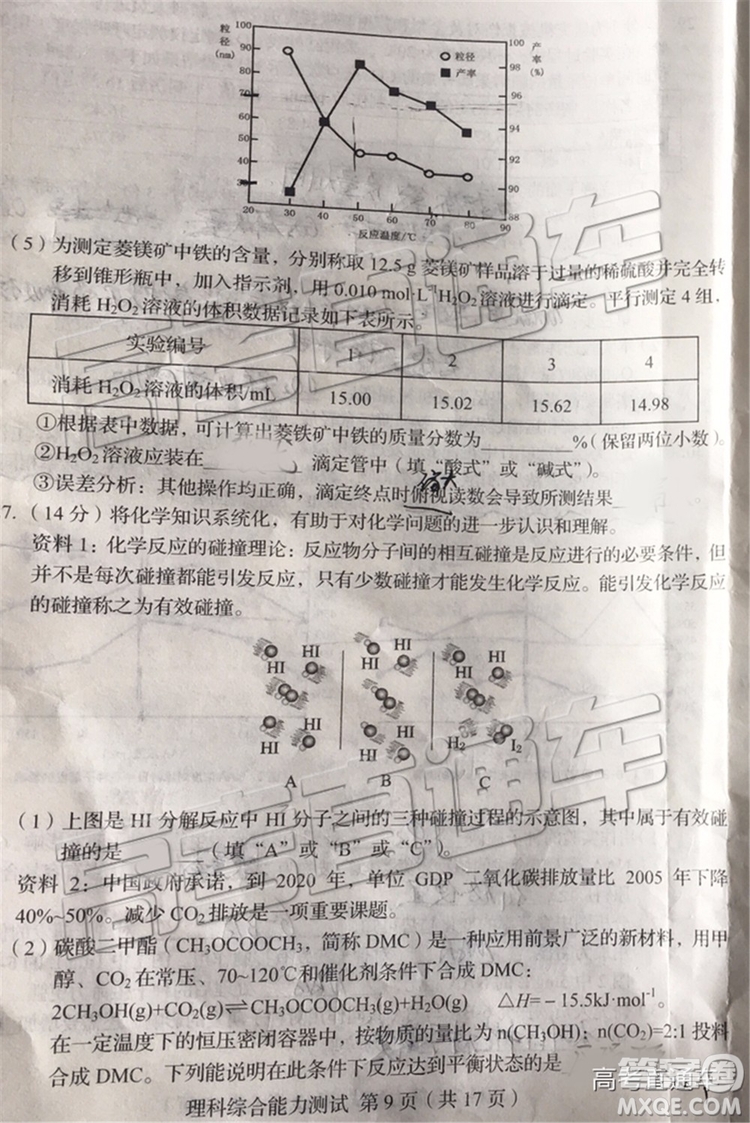 粒径(nm) 产率(%)
100 100
90 98
80
70 96
60 94
50
40 92
30 90
20 88
20 30 40 50 60 70 80 90
反应温度/℃
粒径
产率
（5）为测定菱镁矿中铁的含量，分别称取 12.5 g 菱镁矿样品溶于过量的稀硫酸并完全转
移到锥形瓶中，加入指示剂，用 0.010 mol·L⁻¹H₂O₂溶液进行滴定。平行测定 4 组，
消耗 H₂O₂溶液的体积数据记录如下表所示。
实验编号 1 2 3 4
消耗 H₂O₂溶液的体积/mL 15.00 15.02 15.62 14.98
①根据表中数据，可计算出菱铁矿中铁的质量分数为________%（保留两位小数）。
②H₂O₂溶液应装在________滴定管中（填“酸式”或“碱式”）。
偏大
③误差分析：其他操作均正确，滴定终点时俯视读数会导致所测结果
7.（14 分）将化学知识系统化，有助于对化学问题的进一步认识和理解。
资料 1：化学反应的碰撞理论：反应物分子间的相互碰撞是反应进行的必要条件，但
并不是每次碰撞都能引发反应，只有少数碰撞才能发生化学反应。能引发化学反应
的碰撞称之为有效碰撞。
HI HI HI HI HI HI
HI HI HI HI H₂ I₂
A B C
（1）上图是 HI 分解反应中 HI 分子之间的三种碰撞过程的示意图，其中属于有效碰
撞的是________（填“A”或“B”或“C”）。
资料 2：中国政府承诺，到 2020 年，单位 GDP 二氧化碳排放量比 2005 年下降
40%~50%。减少 CO₂排放是一项重要课题。
（2）碳酸二甲酯（CH₃OCOOCH₃，简称 DMC）是一种应用前景广泛的新材料，用甲
醇、CO₂在常压、70~120℃和催化剂条件下合成 DMC：
2CH₃OH(g)+CO₂(g)⇌CH₃OCOOCH₃(g)+H₂O(g) △H=－15.5kJ·mol⁻¹。
在一定温度下的恒压密闭容器中，按物质的量比为 n(CH₃OH)：n(CO₂)=2:1 投料
合成 DMC。下列能说明在此条件下反应达到平衡状态的是
理科综合能力测试 第 9 页（共 17 页）
高考直通车
答案圈
MXQE.COM